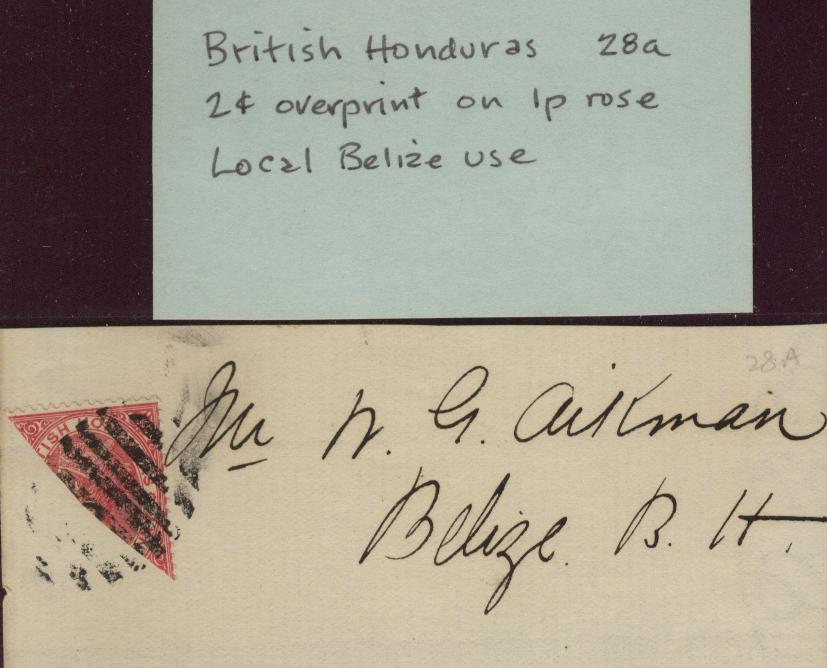 British Honduras 28a
2¢ overprint on 1p rose
Local Belize use
28A
Mr W. G. Aikman
Belize. B. H.
TISH HO